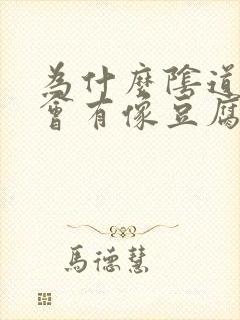 為什麼陰道
會有像豆腐
馬德慧